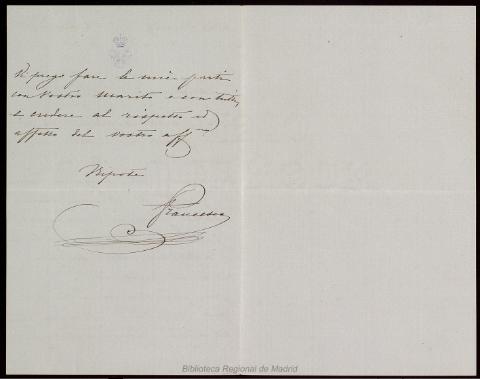 Vi prego fare le mie parti
con vostro marito e con tutti,
e credere al rispetto ed
affetto del vostro aff
Nipote
Francesco
Biblioteca Regional de Madrid